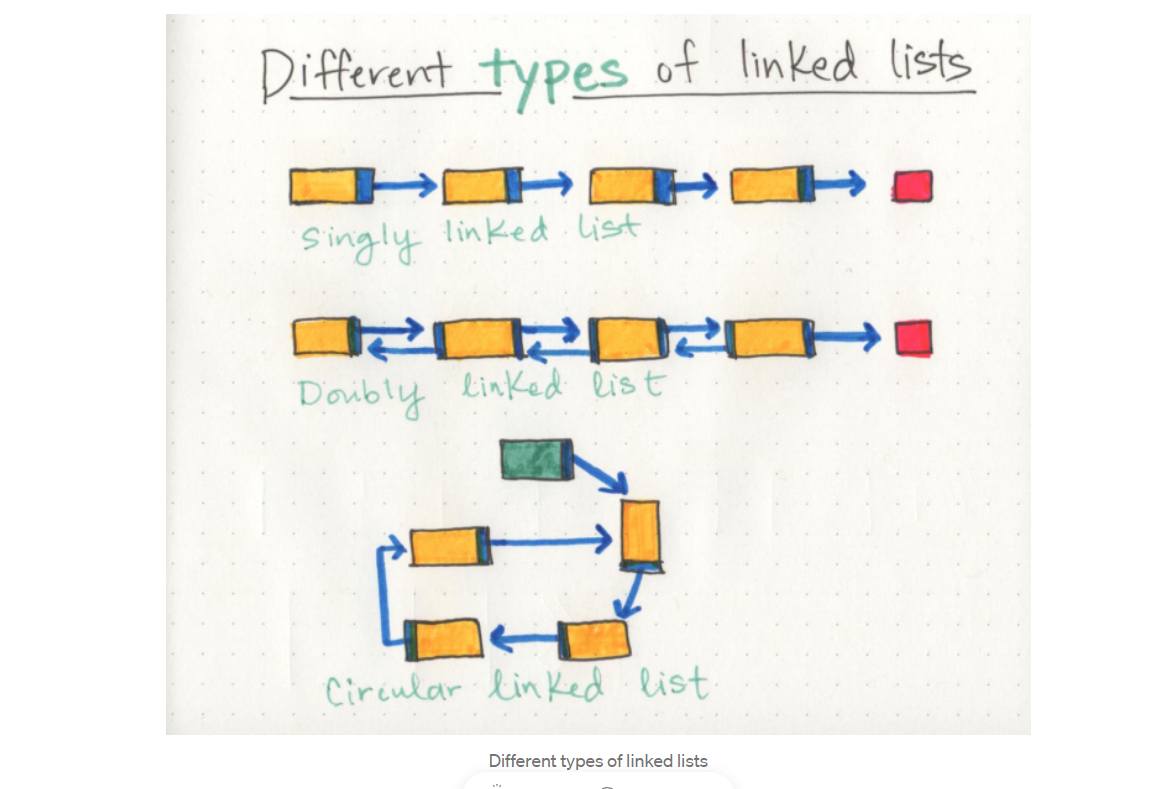 Different types of linked lists
Singly linked list
Doubly linked list
Circular linked list
Different types of linked lists